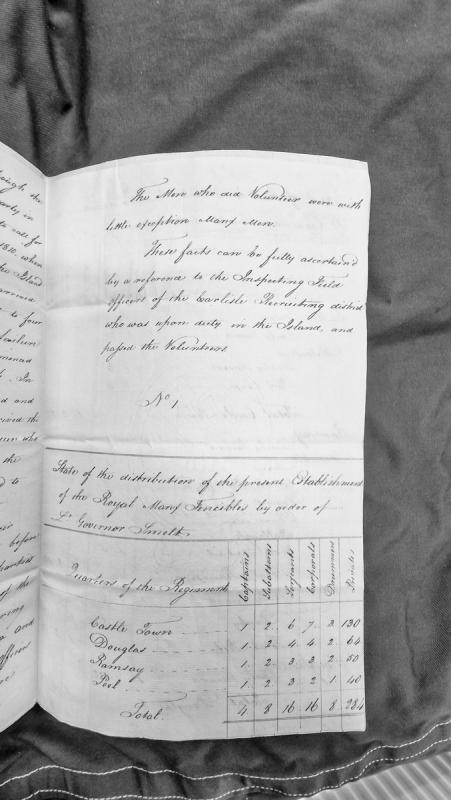 ough the
arty in
to call for
1810, when
the Island
armed
to four
menced
. In
d and
ceived the
who
the
d to
before
of the
and
officers
The Men who did Volunteer were with
little exception Manx Men.
These facts can be fully ascertain'd
by a reference to the Inspecting Field
officers of the Carlisle Recruiting district
who was upon duty in the Island, and
passed the Volunteers
No 1
State of the distribution of the present Establishment
of the Royal Manx Fencibles by order of
Lt Governor Smelt.
Quarters of the Regiment Captains Subalterns Serjeants Corporals Drummers Privates
Castle Town 1 2 6 7 3 130
Douglas 1 2 4 4 2 64
Ramsay 1 2 3 3 2 50
Peel 1 2 3 2 1 40
Total 4 8 16 16 8 284